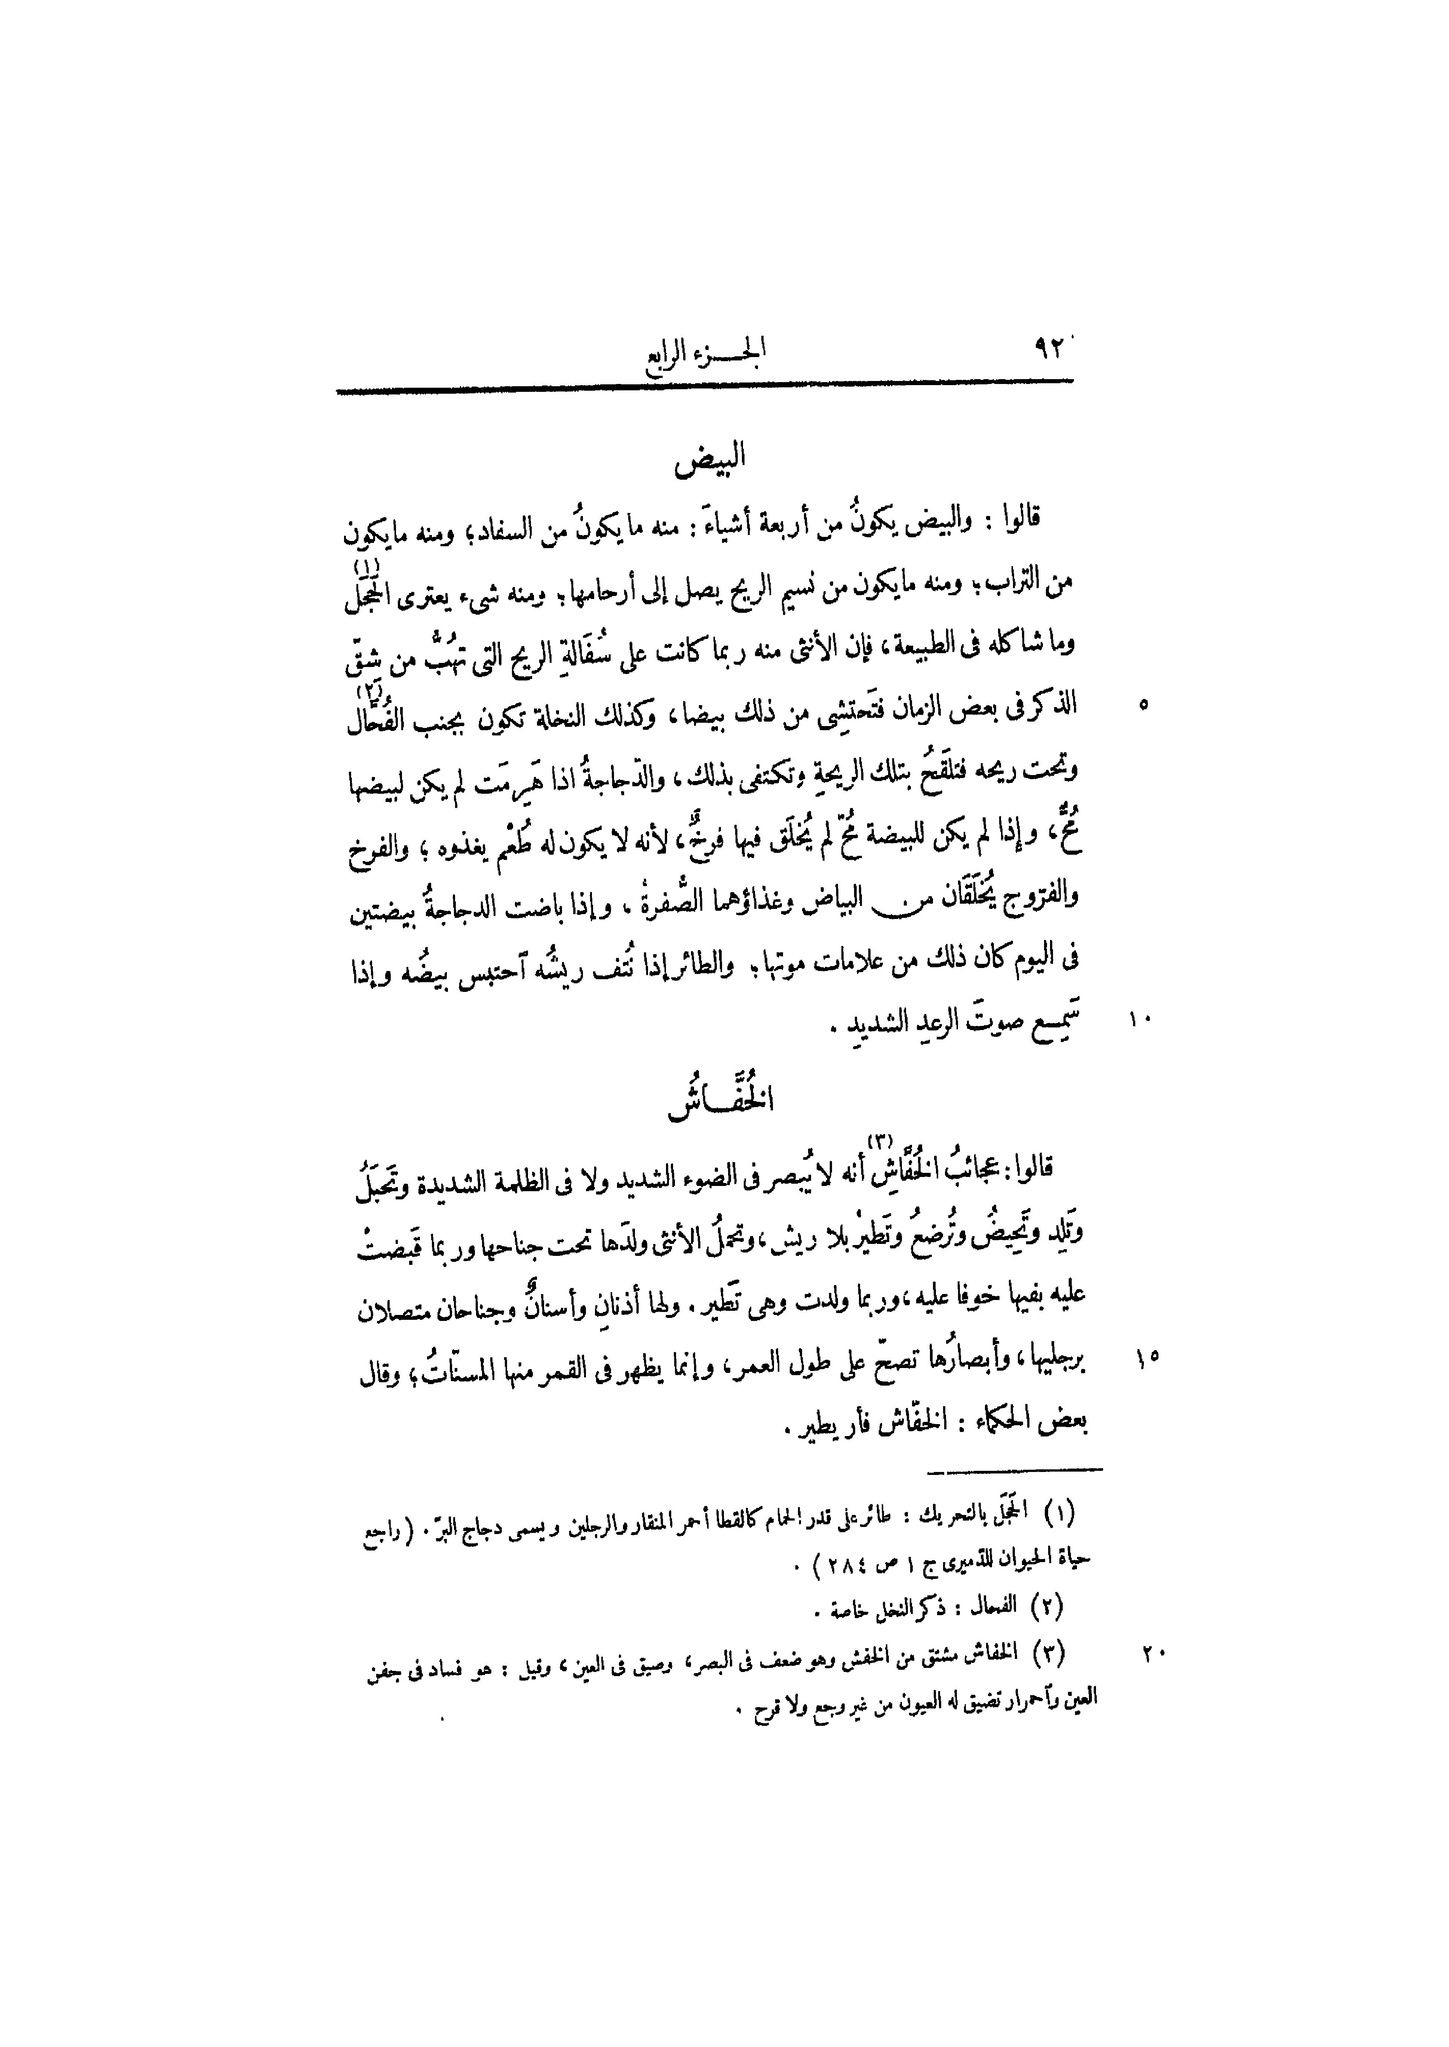 ٩٢ الجـزء الرابع
البيض
قالوا : والبيض يكونُ من أربعة أشياءَ : منه ما يكونُ من السفاد؛ ومنه ما يكون
من التراب؛ ومنه ما يكون من نسيم الريح يصل إلى أرحامها؛ ومنه شىء يعترى الحَجَلَ (١)
وما شاكله فى الطبيعة، فإن الأنثى منه ربما كانت على سُفَالةِ الريح التى تهُبُّ من شِقّ
٥ الذكر فى بعض الزمان فتَحتشِى من ذلك بيضا، وكذلك النخلة تكون بجنب الفُحَّال (٢)
وتحت ريحه فتلقَحُ بتلك الريحةِ وتكتفى بذلك، والدّجاجةُ اذا هَرِمَت لم يكن لبيضها
مُحٌّ، وإذا لم يكن للبيضة مُحّ لم يُخلَق فيها فرخٌ، لأنه لا يكون له طُعْم يغذوه ؛ والفرخ
والفرّوج يُخلَقَان من البياض وغذاؤهما الصُّفرةُ . وإذا باضت الدجاجةُ بيضتين
فى اليوم كان ذلك من علامات موتها؛ والطائر إذا نُتف ريشُه آحتبس بيضُه وإذا
١٠ سَمِـع صوتَ الرعدِ الشديدِ .
الخُفَّـاشُ
قالوا : عجائبُ الخُفَّاشِ (٣) أنه لا يُبصر فى الضوء الشديد ولا فى الظلمة الشديدة وتَحبَلُ
وتَلِد وتَحِيضُ وتُرضعُ وتَطيرُ بلا ريش، وتحملُ الأنثى ولدَها تحت جناحها وربما قَبضتْ
عليه بفيها خوفا عليه، وربما ولدت وهى تَطير . ولها أذنانِ وأسنانٌ وجناحان متصلان
١٥ برجليها، وأبصارُها تصحّ على طول العمر، وإنما يظهر فى القمر منها المسنّاتُ؛ وقال
بعض الحكماء : الخفّاش فأر يطير .
(١) الحَجَلَ بالتحريك : طائر على قدر الحمام كالقطا أحمر المنقار والرجلين ويسمى دجاج البرّ . (راجع
حياة الحيوان للدّميرى ج ١ ص ٢٨٤) .
(٢) الفحال : ذكر النخل خاصة .
٢٠ (٣) الخفاش مشتق من الخفش وهو ضعف فى البصر، وضيق فى العين، وقيل : هو فساد فى جفن
العين وآحمرار تضيق له العيون من غير وجع ولا قرح .